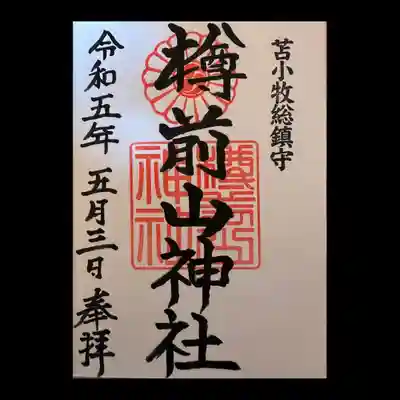 苫小牧総鎮守
樽前山神社
令和五年 五月三日 奉拝